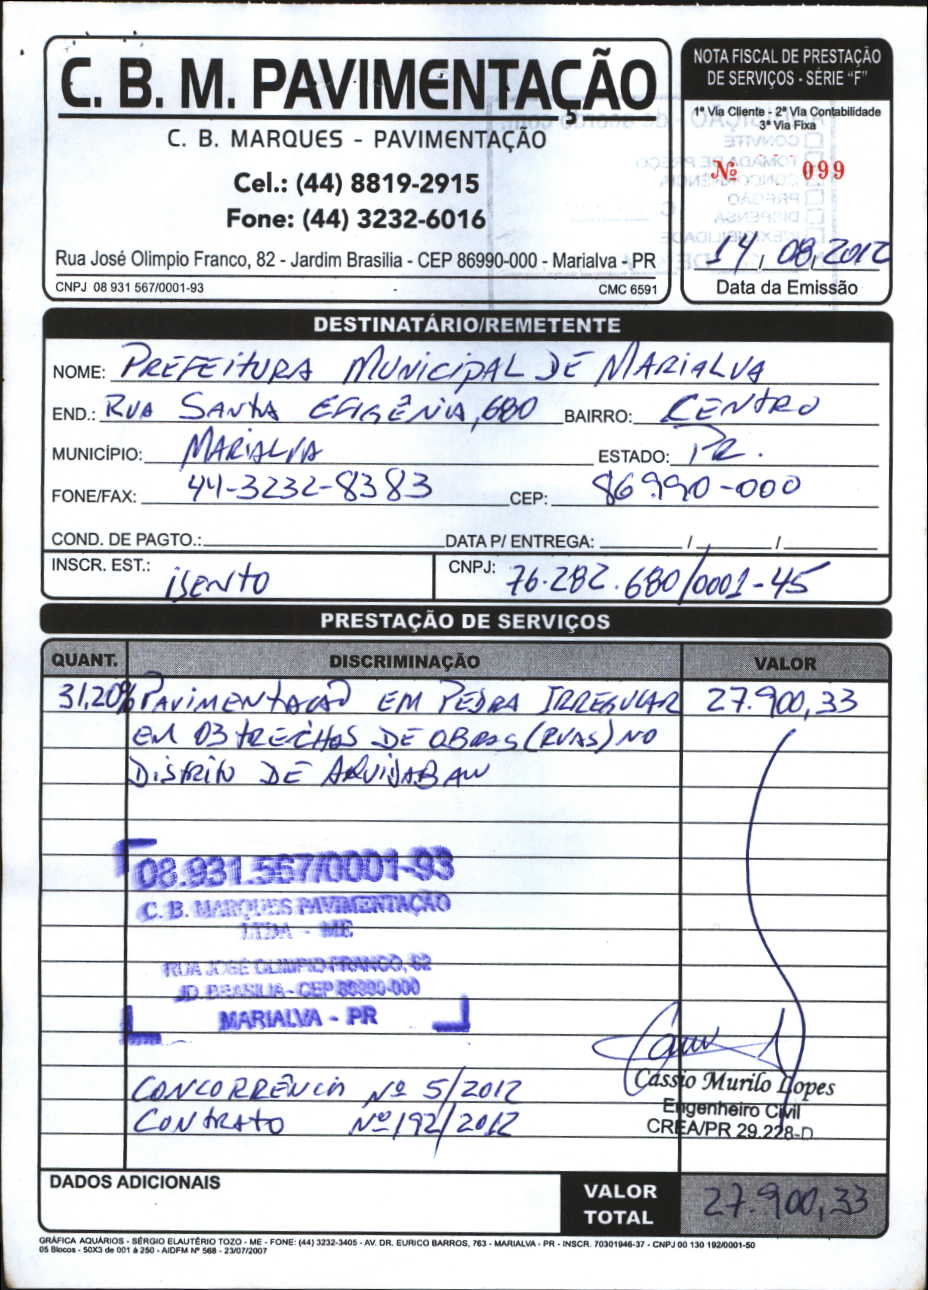 C. B. M. PAVIMENTAÇÃO
C. B. MARQUES - PAVIMENTAÇÃO
Cel.: (44) 8819-2915
Fone: (44) 3232-6016
Rua José Olimpio Franco, 82 - Jardim Brasilia - CEP 86990-000 - Marialva - PR
CNPJ 08 931 567/0001-93 CMC 6591
NOTA FISCAL DE PRESTAÇÃO
DE SERVIÇOS - SÉRIE “F”
1ª Via Cliente - 2ª Via Contabilidade
3ª Via Fixa
CONVITE
TOMADA DE PREÇO
CONCORRÊNCIA
PREGÃO
DISPENSA
INEXIGIBILIDADE
Nº 099
14, 08, 2012
Data da Emissão
DESTINATÁRIO/REMETENTE
NOME: PREFEITURA MUNICIPAL DE MARIALVA
END.: RUA SANTA EFIGÊNIA, 680 BAIRRO: CENTRO
MUNICÍPIO: MARIALVA ESTADO: PR.
FONE/FAX: 44-3232-8383 CEP: 86990-000
COND. DE PAGTO.: DATA P/ ENTREGA: / /
INSCR. EST.: ISENTO CNPJ: 76.282.680/0001-45
PRESTAÇÃO DE SERVIÇOS
QUANT. DISCRIMINAÇÃO VALOR
31,20% PAVIMENTAÇAO EM PEDRA IRREGULAR 27.900,33
EM 03 TRECHOS DE OBRAS (RUAS) NO
DISTRITO DE
08.931.567/0001-93
C. B. MARQUES PAVIMENTAÇÃO
LTDA - ME
RUA JOSÉ OLIMPIO FRANCO, 82
JD. BRASILIA - CEP 86990-000
MARIALVA - PR
Cássio Murilo Lopes
Engenheiro Civil
CREA/PR 29.228-D
CONCORRÊNCIA Nº 5/2012
CONTRATO Nº 192/2012
DADOS ADICIONAIS
VALOR
TOTAL 27.900,33
GRÁFICA AQUÁRIOS - SÉRGIO ELAUTÉRIO TOZO - ME - FONE: (44) 3232-3405 - AV. DR. EURICO BARROS, 763 - MARIALVA - PR - INSCR. 70301946-37 - CNPJ 00 130 192/0001-50
05 Blocos - 50X3 de 001 à 250 - AIDFM Nº 568 - 23/07/2007